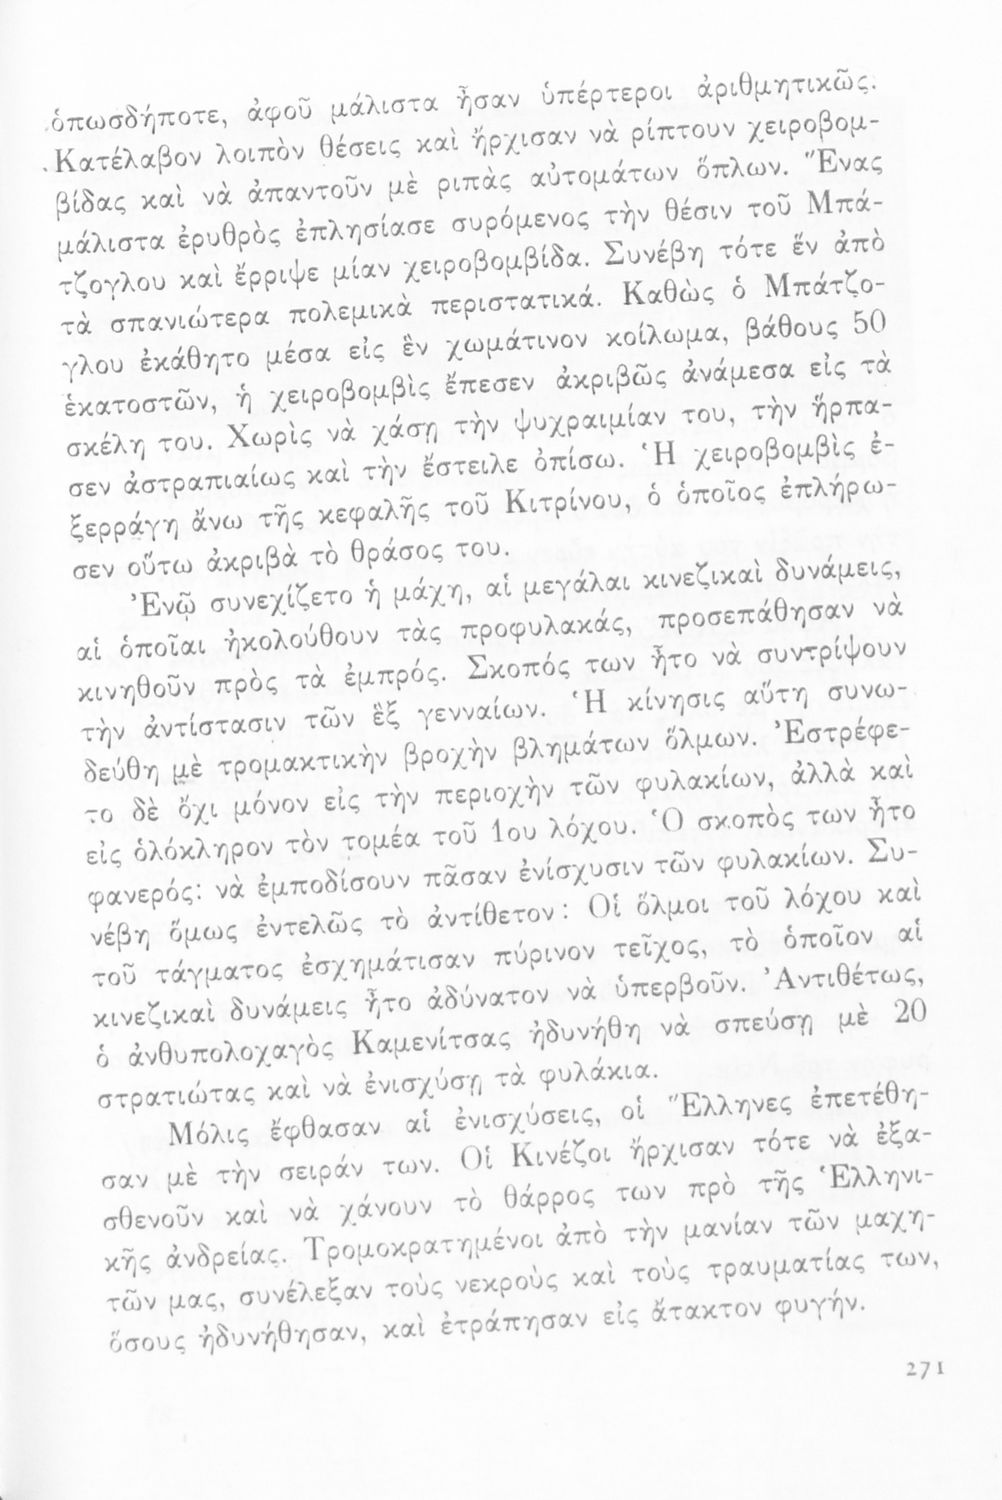 ὁπωσδήποτε, ἀφοῦ μάλιστα ἦσαν ὑπέρτεροι ἀριθμητικῶς.
Κατέλαβον λοιπὸν θέσεις καὶ ἤρχισαν νὰ ρίπτουν χειροβομ-
βίδας καὶ νὰ ἀπαντοῦν μὲ ριπὰς αὐτομάτων ὅπλων. Ἕνας
μάλιστα ἐρυθρὸς ἐπλησίασε συρόμενος τὴν θέσιν τοῦ Μπά-
τζογλου καὶ ἔρριψε μίαν χειροβομβίδα. Συνέβη τότε ἕν ἀπὸ
τὰ σπανιώτερα πολεμικὰ περιστατικά. Καθὼς ὁ Μπάτζο-
γλου ἐκάθητο μέσα εἰς ἓν χωμάτινον κοίλωμα, βάθους 50
ἑκατοστῶν, ἡ χειροβομβὶς ἔπεσεν ἀκριβῶς ἀνάμεσα εἰς τὰ
σκέλη του. Χωρὶς νὰ χάσῃ τὴν ψυχραιμίαν του, τὴν ἥρπα-
σεν ἀστραπιαίως καὶ τὴν ἔστειλε ὀπίσω. Ἡ χειροβομβὶς ἐ-
ξερράγη ἄνω τῆς κεφαλῆς τοῦ Κιτρίνου, ὁ ὁποῖος ἐπλήρω-
σεν οὕτω ἀκριβὰ τὸ θράσος του.
Ἐνῷ συνεχίζετο ἡ μάχη, αἱ μεγάλαι κινεζικαὶ δυνάμεις,
αἱ ὁποῖαι ἠκολούθουν τὰς προφυλακάς, προσεπάθησαν νὰ
κινηθοῦν πρὸς τὰ ἐμπρός. Σκοπός των ἦτο νὰ συντρίψουν
τὴν ἀντίστασιν τῶν ἓξ γενναίων. Ἡ κίνησις αὕτη συνω-
δεύθη μὲ τρομακτικὴν βροχὴν βλημάτων ὅλμων. Ἐστρέφε-
το δὲ ὄχι μόνον εἰς τὴν περιοχὴν τῶν φυλακίων, ἀλλὰ καὶ
εἰς ὁλόκληρον τὸν τομέα τοῦ 1ου λόχου. Ὁ σκοπὸς των ἦτο
φανερός: νὰ ἐμποδίσουν πᾶσαν ἐνίσχυσιν τῶν φυλακίων. Συ-
νέβη ὅμως ἐντελῶς τὸ ἀντίθετον: Οἱ ὅλμοι τοῦ λόχου καὶ
τοῦ τάγματος ἐσχημάτισαν πύρινον τεῖχος, τὸ ὁποῖον αἱ
κινεζικαὶ δυνάμεις ἦτο ἀδύνατον νὰ ὑπερβοῦν. Ἀντιθέτως,
ὁ ἀνθυπολοχαγὸς Καμενίτσας ἠδυνήθη νὰ σπεύσῃ μὲ 20
στρατιώτας καὶ νὰ ἐνισχύσῃ τὰ φυλάκια.
Μόλις ἔφθασαν αἱ ἐνισχύσεις, οἱ Ἕλληνες ἐπετέθη-
σαν μὲ τὴν σειράν των. Οἱ Κινέζοι ἤρχισαν τότε νὰ ἐξα-
σθενοῦν καὶ νὰ χάνουν τὸ θάρρος των πρὸ τῆς Ἑλληνι-
κῆς ἀνδρείας. Τρομοκρατημένοι ἀπὸ τὴν μανίαν τῶν μαχη-
τῶν μας, συνέλεξαν τοὺς νεκροὺς καὶ τοὺς τραυματίας των,
ὅσους ἠδυνήθησαν, καὶ ἐτράπησαν εἰς ἄτακτον φυγήν.
271